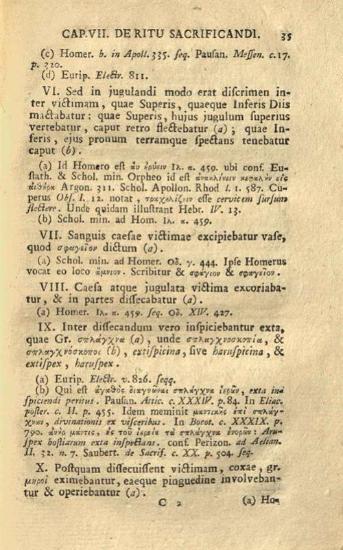 CAP.VII. DE RITU SACRIFICANDI. 35
(c) Homer. h. in Apoll. 335. seq. Pausan. Messen. c. 17.
p. 320.
(d) Eurip. Electr. 811.
VI. Sed in jugulandi modo erat discrimen in-
ter victimam, quae Superis, quaeque Inferis Diis
mactabatur: quae Superis, hujus jugulum superius
vertebatur, caput retro flectebatur (a); quae In-
feris, ejus pronum terramque spectans tenebatur
caput (b).
(a) Id Homero est αὖ ἐρύειν Ιλ. π. 459. ubi conf. Eu-
stath. & Schol. min. Orpheo id est ἀνακλίνειν κεφαλὴν εἰς
αἰθέρα Argon. 311. Schol. Apollon. Rhod l. 1. 587. Cu-
perus Obs. I. 12. notat, τραχηλίζειν esse cervicem sursum
flectere. Unde quidam illustrant Hebr. IV. 13.
(b) Schol. min. ad Hom. Ιλ. π. 459.
VII. Sanguis caesae victimae excipiebatur vase,
quod σφαγεῖον dictum (a).
(a) Schol. min. ad Homer. Οδ. γ. 444. Ipse Homerus
vocat eo loco ἄμνιον. Scribitur & σφάγιον & σφαγεῖον.
VIII. Caesa atque jugulata victima excoriaba-
tur, & in partes dissecabatur (a).
(a) Homer. Ιλ. π 459. seq. Od. XIV. 427.
IX. Inter dissecandum vero inspiciebantur exta,
quae Gr. σπλάγχνα (a), unde σπλαγχνοσκοπία, &
σπλαγχνόσκοπος (b), extispicina, sive haruspicina, &
extispex, haruspex.
(a) Eurip. Electr. v. 826. seqq.
(b) Qui est ἀγαθὸς διαγνῶναι σπλάγχνα ἱερῶν, exta in-
spiciendi peritus. Pausan. Attic. c. XXXIV. p. 84. In Eliac.
poster. c. II. p. 455. Idem meminit μαντικῆς ἐπὶ σπλάγ-
χνοις, divinationis ex visceribus. In Boeot. c. XXXIX. p.
790. ἀνὴρ μάντις, ἐς τοῦ ἱερείου τὰ σπλάγχνα ἐνορῶν: Aru-
spex hostiarum exta inspectans. conf. Perizon. ad Aelian.
II. 32. n. 7. Saubert. de Sacrif. c. XX. p. 504. seq.
X. Postquam dissecuissent victimam, coxae, gr.
μηροὶ eximebantur, eaeque pinguedine involveban-
tur & operiebantur (a).
C 2 (a) Ho-